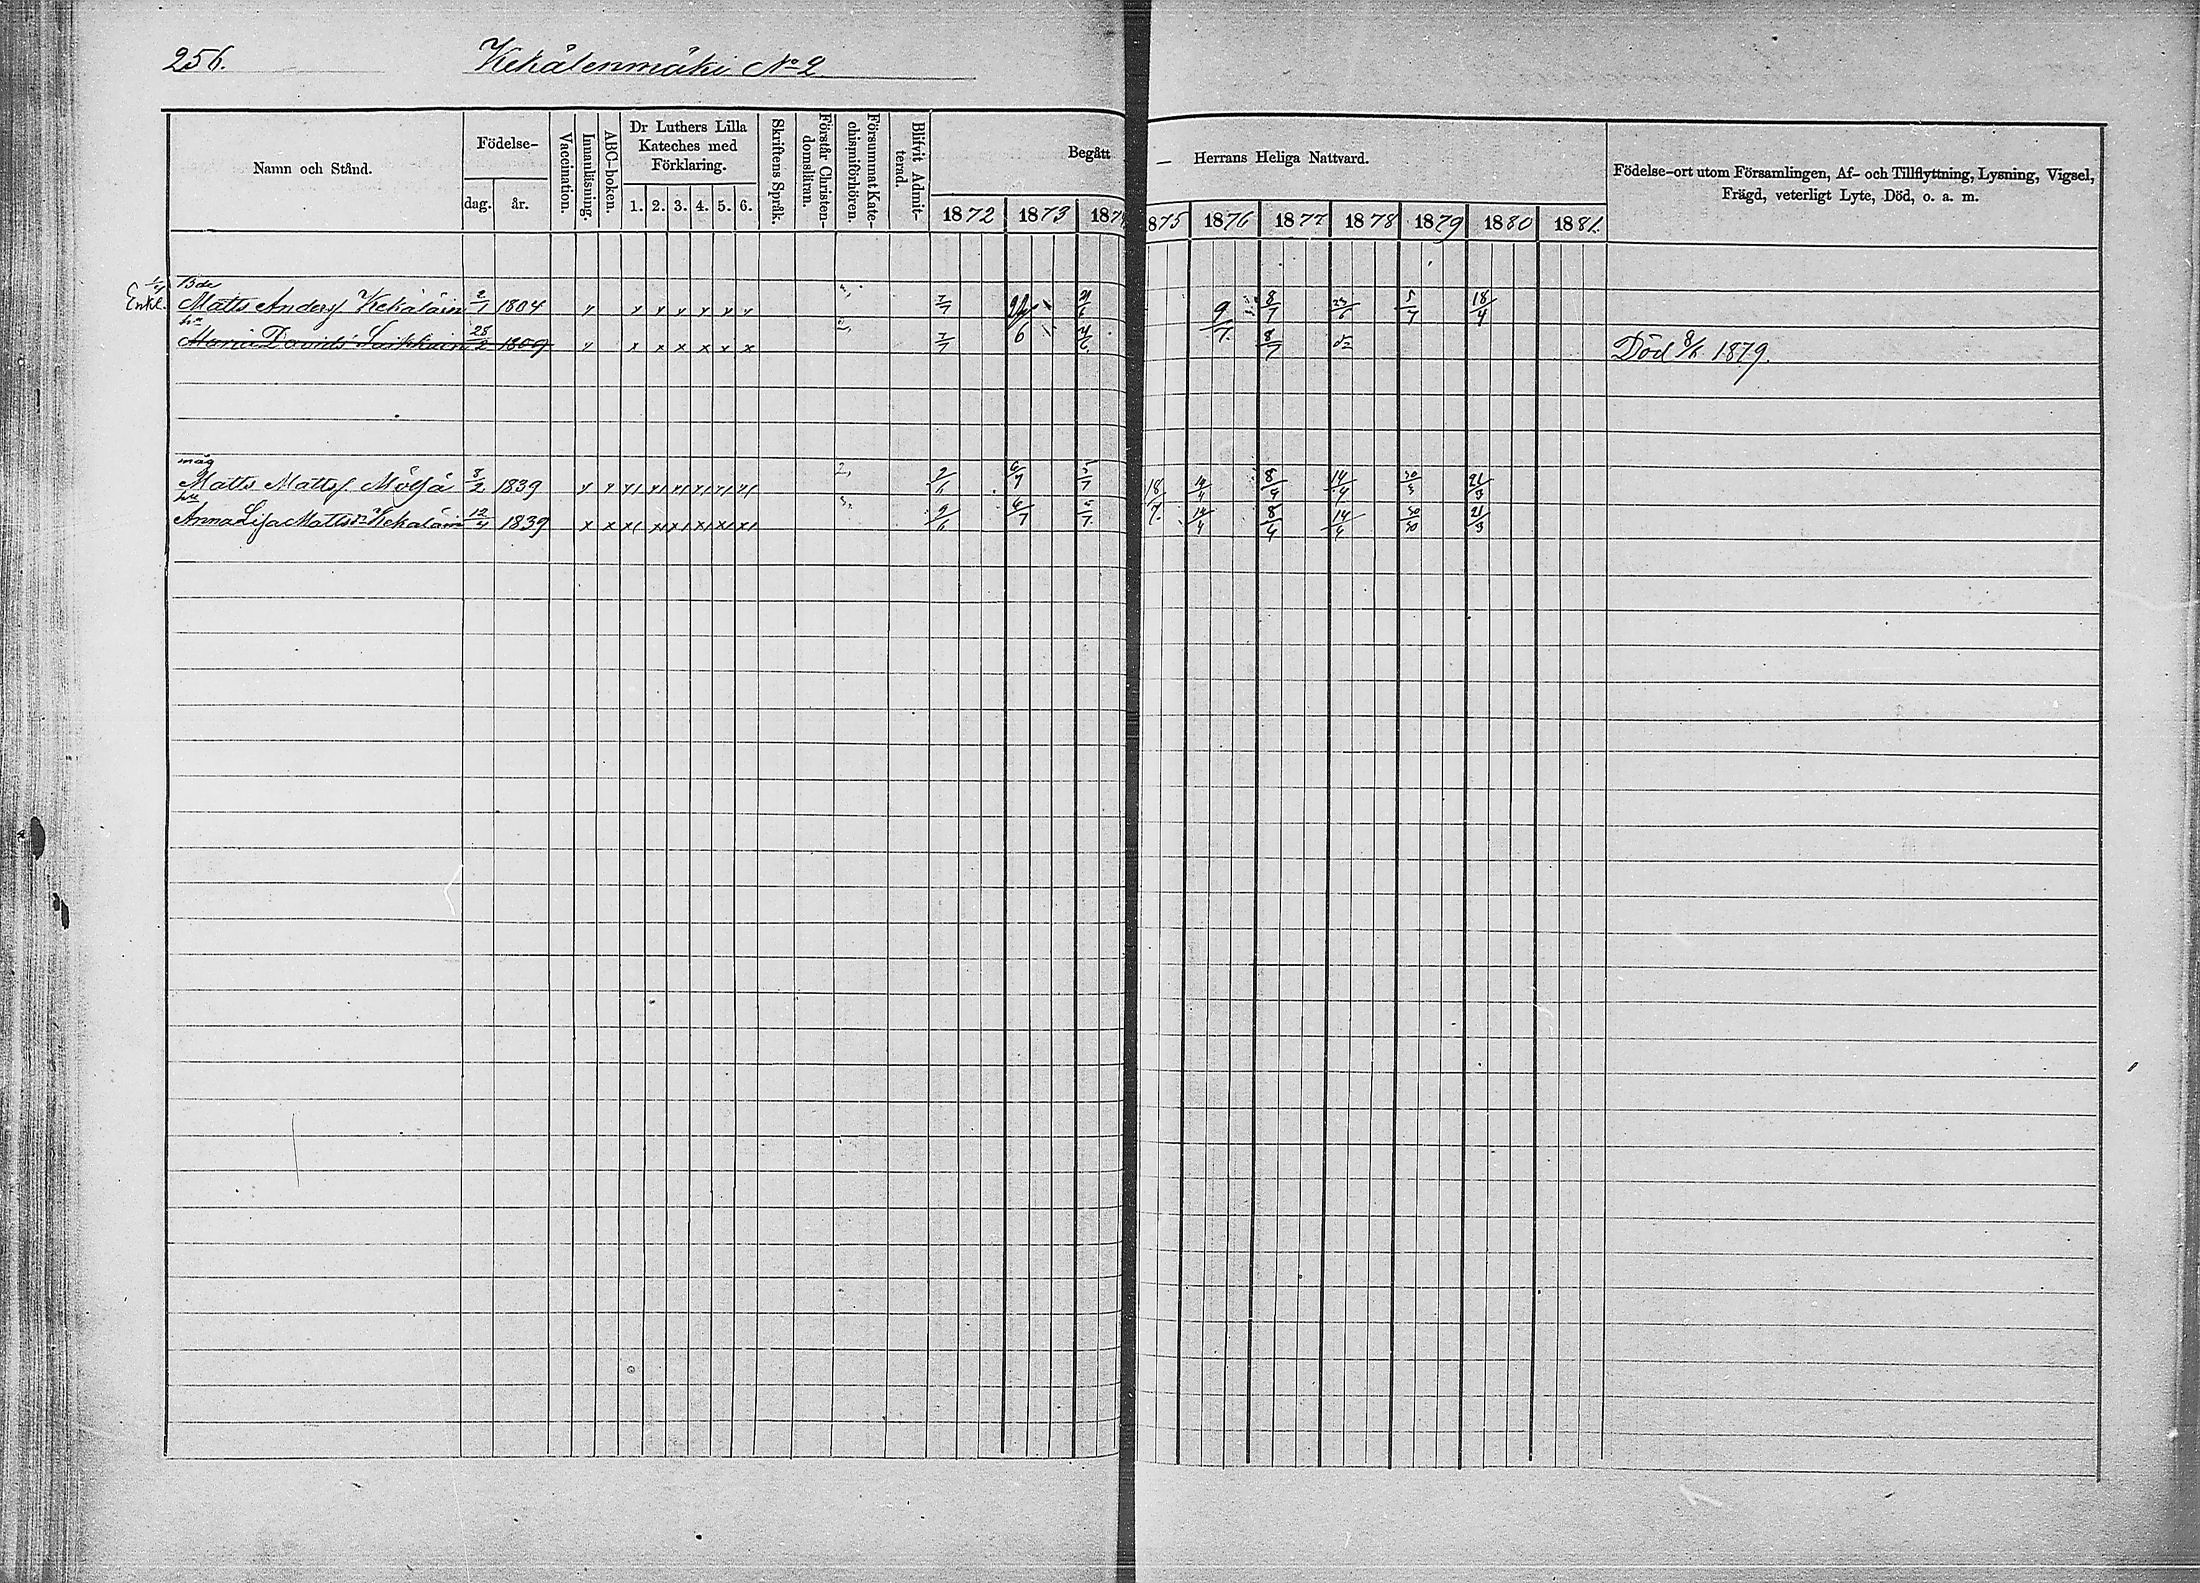 256. Kekälenmäki No 2
Namn och Stånd.
Födelse-
dag. år.
Vaccination.
Innanläsning.
ABC-boken.
Dr Luthers Lilla
Kateches med
Förklaring.
1. 2. 3. 4. 5. 6.
Skriftens Språk.
Förstår Christen-
domsläran.
Försummat Kate-
chismiförhören.
Blifvit Admit-
terad.
Begått — Herrans Heliga Nattvard.
1872 1873 187 875 1876 1877 1878 1879 1880 1881.
Födelse-ort utom Församlingen, Af- och Tillflyttning, Lysning, Vigsel,
Frägd, veterligt Lyte, Död, o. a. m.
Bde
Enkl. Matts Anders Kekäläin 2/1 1804 7/7 22/6 9/7 8/7 23/6 5/7 18/4
hu
Maria Davids Laikkain 28/2 1809 7/7 8/7 Död 8/6 1879.
måg
Matts Matts Möljä 8/2 1839 2, 9/6 6/7 5/7 18/7 14/4 8/4 14/4 30/3 21/3
hu
Anna Lisa Mattsr Kekäläin 12/4 1839 9/6 6/7 5/7 14/4 8/4 14/4 21/3